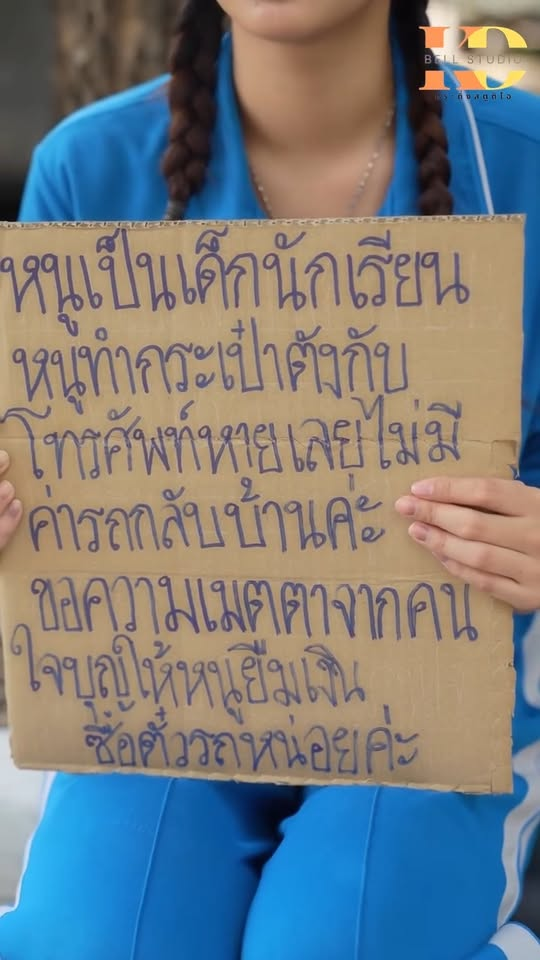 KC
BELL STUDIO
หนูเป็นเด็กนักเรียน
หนูทำกระเป๋าตังกับ
โทรศัพท์หายเลยไม่มี
ค่ารถกลับบ้านค่ะ
ขอความเมตตาจากคน
ใจบุญให้หนูยืมเงิน
ซื้อตั๋วรถหน่อยค่ะ